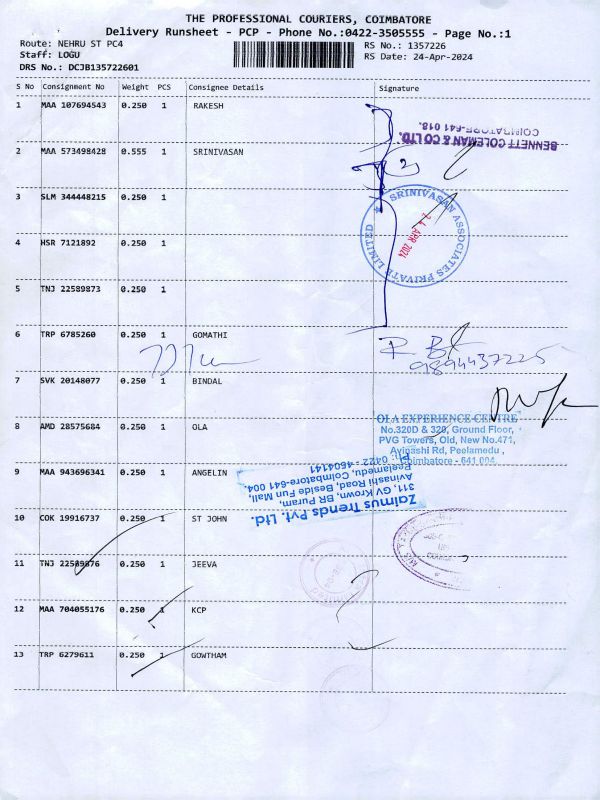 THE PROFESSIONAL COURIERS, COIMBATORE
Delivery Runsheet - PCP - Phone No.:0422-3505555 - Page No.:1
Route: NEHRU ST PC4
RS No.: 1357226
Staff: LOGU
RS Date: 24-Apr-2024
DRS No.: DCJB135722601
S No Consignment No Weight PCS Consignee Details Signature
1 MAA 107694543 0.250 1 RAKESH
BENNETT COLEMAN & CO LTD.
COIMBATORE-641 018.
2 MAA 573498428 0.555 1 SRINIVASAN
3 SLM 344448215 0.250 1
SRINIVASAN ASSOCIATES PRIVATE LIMITED
24 APR 2024
4 HSR 7121892 0.250 1
5 TNJ 22589873 0.250 1
6 TRP 6785260 0.250 1 GOMATHI
9894437225
7 SVK 20148077 0.250 1 BINDAL
8 AMD 28575684 0.250 1 OLA
OLA EXPERIENCE CENTRE
No.320D & 320, Ground Floor,
PVG Towers, Old, New No.471,
Avinashi Rd, Peelamedu,
Coimbatore - 641 004
9 MAA 943696341 0.250 1 ANGELIN
Zaimus Trends Pvt. Ltd.
311, GV Krown, BR Puram,
Avinashi Road, Beside Fun Mall,
Peelamedu, Coimbatore-641 004.
Ph: 0422 - 4504141
10 COK 19916737 0.250 1 ST JOHN
11 TNJ 22589876 0.250 1 JEEVA
12 MAA 704055176 0.250 1 KCP
13 TRP 6279611 0.250 1 GOWTHAM